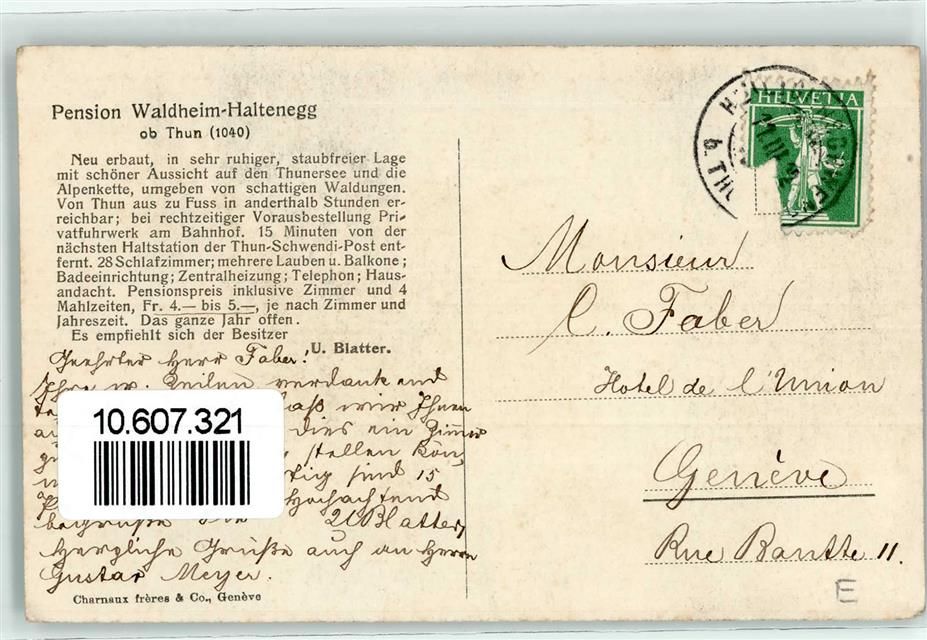 Pension Waldheim-Haltenegg
ob Thun (1040)
Neu erbaut, in sehr ruhiger, staubfreier Lage
mit schöner Aussicht auf den Thunersee und die
Alpenkette, umgeben von schattigen Waldungen.
Von Thun aus zu Fuss in anderthalb Stunden er-
reichbar; bei rechtzeitiger Vorausbestellung Pri-
vatfuhrwerk am Bahnhof. 15 Minuten von der
nächsten Haltstation der Thun-Schwendi-Post ent-
fernt. 28 Schlafzimmer; mehrere Lauben u. Balkone;
Badeeinrichtung; Zentralheizung; Telephon; Haus-
andacht. Pensionspreis inklusive Zimmer und 4
Mahlzeiten, Fr. 4.— bis 5.—, je nach Zimmer und
Jahreszeit. Das ganze Jahr offen.
Es empfiehlt sich der Besitzer
U. Blatter.
Geehrter Herr Faber!
Ihre w. Zeilen verdankend
daß wir Ihnen
dies ein Zimmer
stellen kön
sind 15
Hochachtend
begrüßt Sie U Blatter,
Herzliche Grüße auch an Herrn
Gustav Meyer.
Charnaux frères & Co., Genève
10.607.321
HELVETIA
b. THU
Monsieur
C. Faber
Hotel de l'Union
Genève
Rue Bautte 11.
E